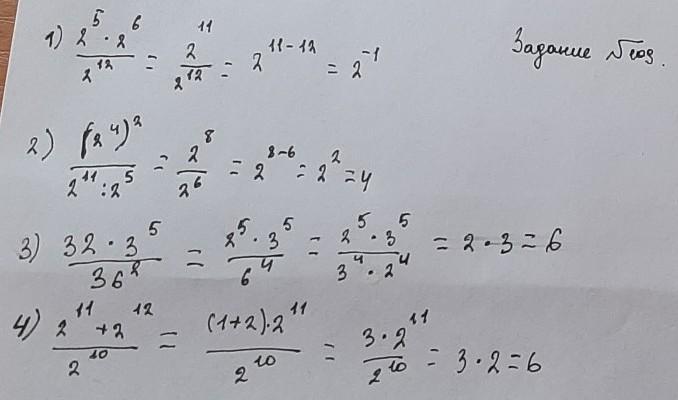 Задание №
1) (2^5 · 2^6)/2^12 = 2^11/2^12 = 2^(11-12) = 2^(-1)
2) (2^4)^2/(2^11 : 2^5) = 2^8/2^6 = 2^(8-6) = 2^2 = 4
3) (32 · 3^5)/36^2 = (2^5 · 3^5)/6^4 = (2^5 · 3^5)/(3^4 · 2^4) = 2 · 3 = 6
4) (2^11 + 2^12)/2^10 = ((1+2) · 2^11)/2^10 = (3 · 2^11)/2^10 = 3 · 2 = 6